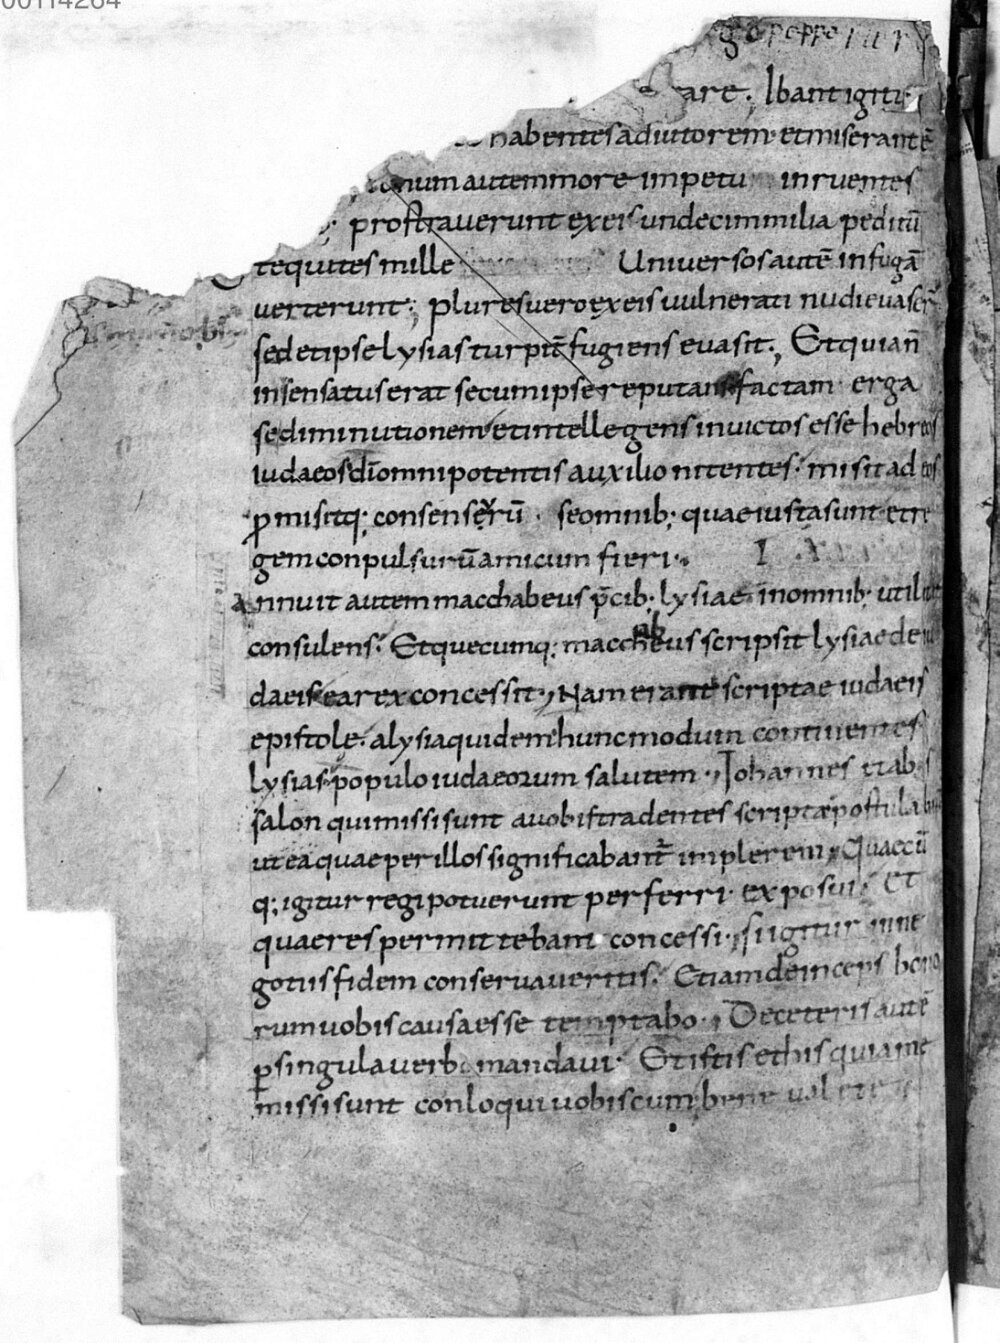 00114264
are. Ibant igitur
habentes adiutorem· et miserantē
onum autem more impetu inruentes
prostraverunt ex eis undecim milia peditū
tequites mille Universos autē in fugā
verterunt; plures vero ex eis vulnerati nudi evaser̄
sed et ipse lysias turpit̄ fugiens evasit., Et quia n̄
insensatus erat secum ipse reputans factam erga
se diminutionem et intellegens invictos esse hebreos
iudaeos dī omnipotentis auxilio nitentes· misit ad eos
ꝑmisitq; consensẹrū· se omnib; quae iusta sunt et re
gem conpulsurū amicum fieri·.
Annuit autem macchabeus p̄cib; lysiae in omnib; utilitati
consulens; Et quecumq; macchabeus scripsit lysiae de iu
daeis ea rex concessit., Nam erant scriptae iudaeis
epistole· a lysia quidem hunc modum continentes
lysias populo iudaeorum salutem., Iohannes et ab
salon qui missi sunt a vobis tradentes scripta postulabant
ut ea quae per illos significabant̄ implerem., Quaecū
q; igitur regi potuerunt perferri· exposui· Et
quae res permittebant concessi., si igitur in ne
gotiis fidem conservaveritis; Etiam deinceps bono
rum vobis causa esse temptabo., De ceteris autē
ꝑ singula verbo mandavi· Et istis et his qui a me
missi sunt conloqui vobiscum; bene valete